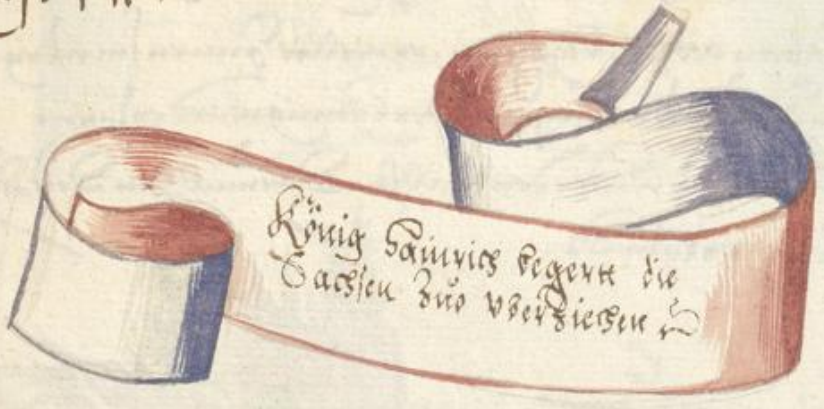 König Hainrich begertt die
Sachsen zuo vberziechen